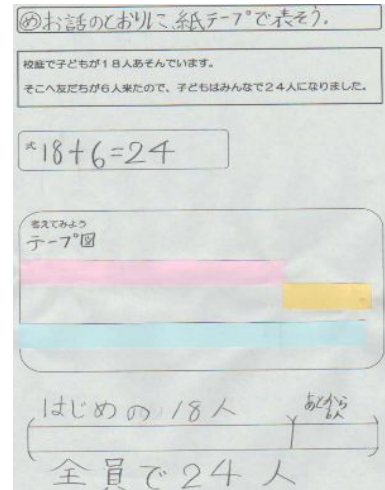 めお話のとおりに、紙テープで表そう。
校庭で子どもが18人あそんでいます。
そこへ友だちが6人来たので、子どもはみんなで24人になりました。
式 18+6=24
考えてみよう
テープ図
はじめの 18人
あとから
6人
全員で24人